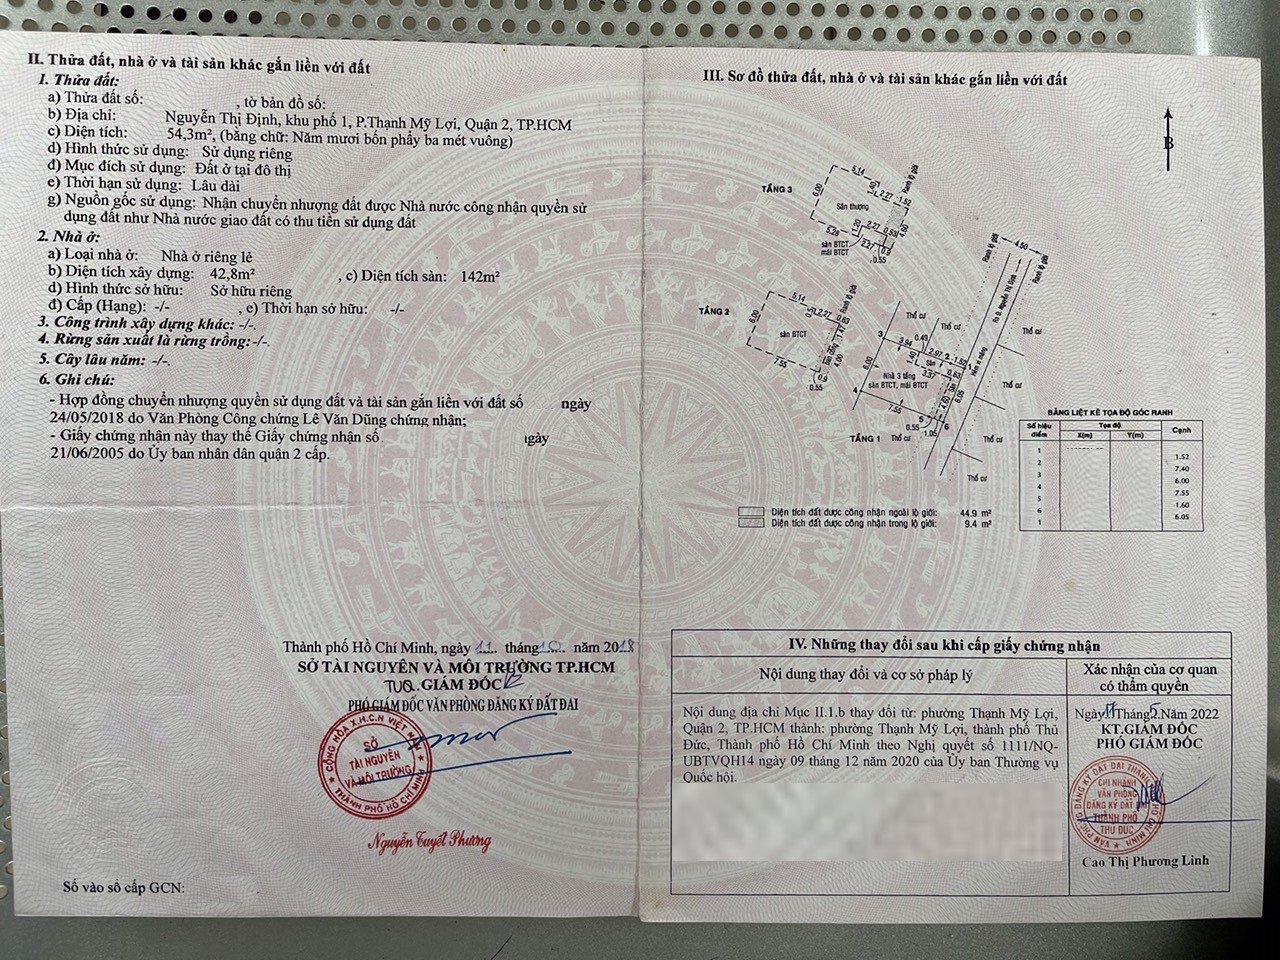 II. Thửa đất, nhà ở và tài sản khác gắn liền với đất
1. Thửa đất:
a) Thửa đất số: , tờ bản đồ số:
b) Địa chỉ: Nguyễn Thị Định, khu phố 1, P.Thạnh Mỹ Lợi, Quận 2, TP.HCM
c) Diện tích: 54,3m², (bằng chữ: Năm mươi bốn phẩy ba mét vuông)
d) Hình thức sử dụng: Sử dụng riêng
đ) Mục đích sử dụng: Đất ở tại đô thị
e) Thời hạn sử dụng: Lâu dài
g) Nguồn gốc sử dụng: Nhận chuyển nhượng đất được Nhà nước công nhận quyền sử
dụng đất như Nhà nước giao đất có thu tiền sử dụng đất
2. Nhà ở:
a) Loại nhà ở: Nhà ở riêng lẻ
b) Diện tích xây dựng: 42,8m² , c) Diện tích sàn: 142m²
d) Hình thức sở hữu: Sở hữu riêng
đ) Cấp (Hạng): -/- , e) Thời hạn sở hữu: -/-
3. Công trình xây dựng khác: -/-.
4. Rừng sản xuất là rừng trồng: -/-.
5. Cây lâu năm: -/-.
6. Ghi chú:
- Hợp đồng chuyển nhượng quyền sử dụng đất và tài sản gắn liền với đất số ngày
24/05/2018 do Văn Phòng Công chứng Lê Văn Dũng chứng nhận;
- Giấy chứng nhận này thay thế Giấy chứng nhận số ngày
21/06/2005 do Ủy ban nhân dân quận 2 cấp.
Thành phố Hồ Chí Minh, ngày 11 tháng 10 năm 2018
SỞ TÀI NGUYÊN VÀ MÔI TRƯỜNG TP.HCM
TUQ. GIÁM ĐỐC
PHÓ GIÁM ĐỐC VĂN PHÒNG ĐĂNG KÝ ĐẤT ĐAI
CỘNG HÒA X.H.C.N VIỆT NAM
SỞ
TÀI NGUYÊN
VÀ MÔI TRƯỜNG
★ THÀNH PHỐ HỒ CHÍ MINH ★
Nguyễn Tuyết Phương
Số vào sổ cấp GCN:
III. Sơ đồ thửa đất, nhà ở và tài sản khác gắn liền với đất
B
TẦNG 3
5.14
6.00
1.40
2.27
1.52
Ranh lộ giới
Sân thượng
5.28
1.20
2.27
0.53
4.60
sân BTCT
mái BTCT
2.27
0.9
0.55
TẦNG 2
5.14
6.00
0.5
2.27
0.63
Ranh lộ giới
sàn BTCT
1.47
4.00
7.55
0.9
0.55
4.50
Ranh lộ giới
Ranh lộ giới
Ra Đ. Nguyễn Thị Định
Hẻm xi măng
Thổ cư
Thổ cư
Thổ cư
Thổ cư
Thổ cư
Thổ cư
Thổ cư
3
3.94
0.49
2.97
2
1.52
1
6.00
1.40
Sân
3.37
0.63
Nhà 3 tầng
sân BTCT, mái BTCT
4
7.55
4.60
6.05
5
6
0.55
1.05
TẦNG 1
Diện tích đất được công nhận ngoài lộ giới: 44.9 m²
Diện tích đất được công nhận trong lộ giới: 9.4 m²
BẢNG LIỆT KÊ TỌA ĐỘ GÓC RANH
Số hiệu điểm Tọa độ Cạnh
X(m) Y(m)
1
1.52
2
7.40
3
6.00
4
7.55
5
1.60
6
6.05
1
IV. Những thay đổi sau khi cấp giấy chứng nhận
Nội dung thay đổi và cơ sở pháp lý
Xác nhận của cơ quan
có thẩm quyền
Nội dung địa chỉ Mục II.1.b thay đổi từ: phường Thạnh Mỹ Lợi,
Quận 2, TP.HCM thành: phường Thạnh Mỹ Lợi, thành phố Thủ
Đức, Thành phố Hồ Chí Minh theo Nghị quyết số 1111/NQ-
UBTVQH14 ngày 09 tháng 12 năm 2020 của Ủy ban Thường vụ
Quốc hội.
Ngày Tháng 5 Năm 2022
KT.GIÁM ĐỐC
PHÓ GIÁM ĐỐC
VĂN PHÒNG ĐĂNG KÝ ĐẤT ĐAI THÀNH PHỐ HỒ CHÍ MINH
CHI NHÁNH
VĂN PHÒNG
ĐĂNG KÝ ĐẤT ĐAI
THÀNH PHỐ
THỦ ĐỨC
Cao Thị Phương Linh